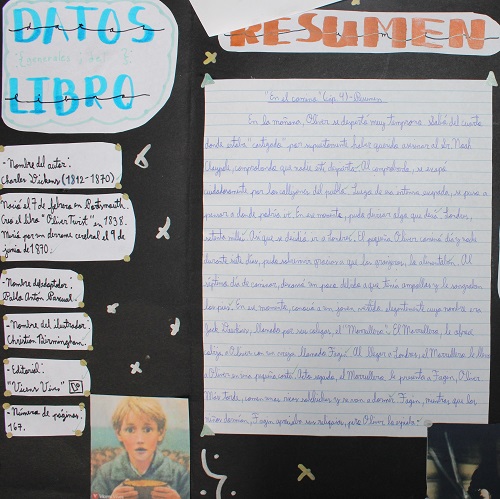 DATOS
datos
¡Generales del
LIBRO
libro
-Nombre del autor:
Charles Dickens (1812-1870)
Nació el 7 de febrero en Portsmouth.
Creo el libro "Oliver Twist" en 1838.
Murió por un derrame cerebral el 9 de
junio de 1870.
-Nombre del adaptador:
Pablo Antón Pascual.
-Nombre del ilustrador:
Christian Birmingham.
-Editorial:
"Vicens Vives"
-Número de páginas:
167.
RESUMEN
"En el camino" (cap. 4)-Resumen
En la mañana, Oliver se despertó muy temprano. Salió del cuarto
donde estaba castigado, por supuestamente haber querido asesinar al Sr. Noah
Claypole, comprobando que nadie esté despierto. Al comprobarlo, se escapó
cuidadosamente por los callejones del pueblo. Luego de su intensa escapada, se puso a
pensar a donde podría ir. En ese momento, pudo divisar algo que decía "Londres,
setenta millas". Así que se decidió ir a Londres. El pequeño Oliver caminó día y noche
durante siete días, pudo salvarse gracias a que los granjeros, le alimentaban. Al
séptimo día de caminar, descansó un poco debido a que tenía ampollas y le sangraban
los pies. En ese momento, conoció a un joven vestido elegantemente cuyo nombre era
Jack Dawkins, llamado por sus colegas, el "Marrullero". El Marrullero, le ofreció
cobijo a Oliver con un amigo llamado Fagin. Al llegar a Londres, el Marrullero le llevó
a Oliver a una pequeña casita. Acto seguido, el Marrullero le presenta a Fagin, Oliver.
Más tarde, comen unas ricas salchichas y se van a dormir. Fagin, mientras que los
niños dormían, Fagin apreciaba sus reliquias, pero Oliver lo